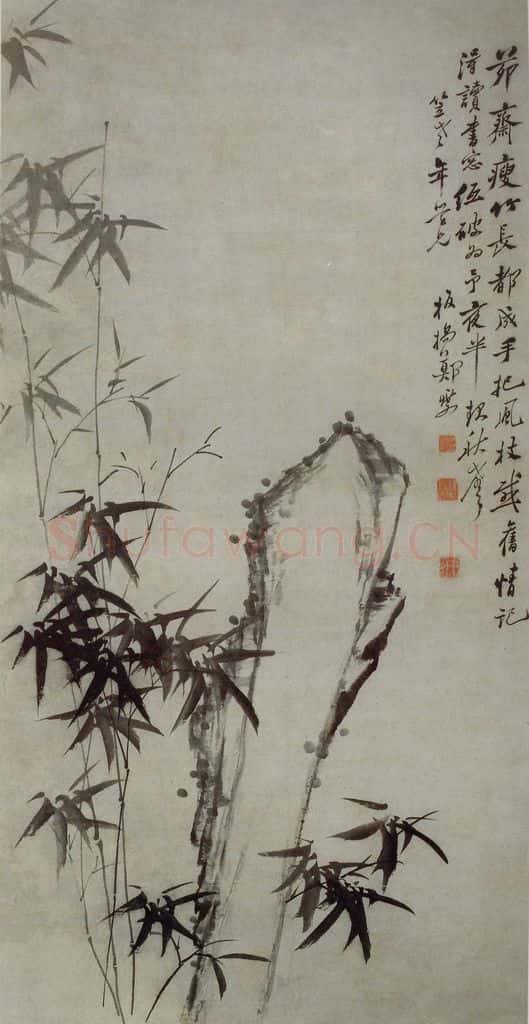 茆齋瘦竹長都成手把風枝感舊情記
得讀書窓紙破為予夜半報秋聲
竺老年學兄 板橋鄭燮
Shufawang.CN